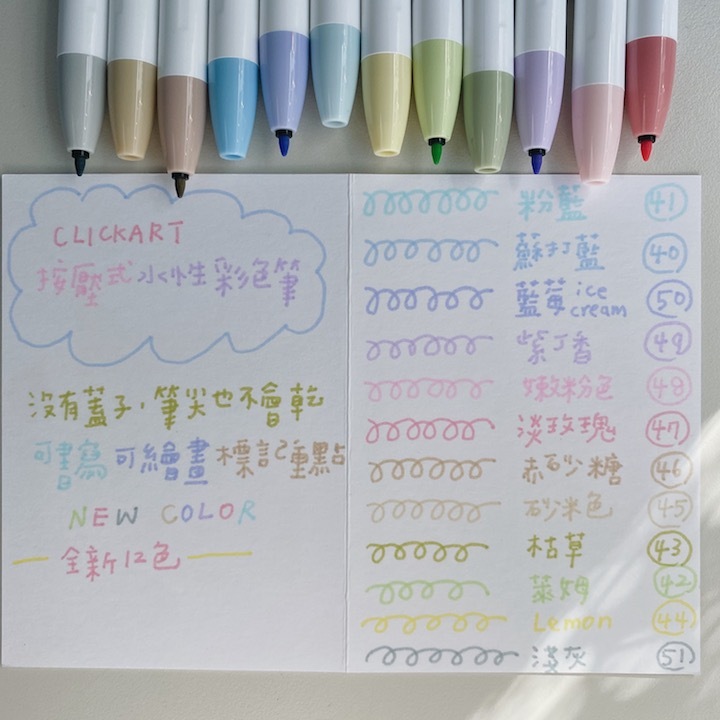 CLICKART
按壓式水性彩色筆
沒有蓋子,筆尖也不會乾
可書寫可繪畫標記重點
NEW COLOR
全新12色
粉藍 41
蘇打藍 40
藍莓ice cream 50
紫丁香 49
嫩粉色 48
淡玫瑰 47
赤砂糖 46
砂米色 45
枯草 43
萊姆 42
Lemon 44
淺灰 51